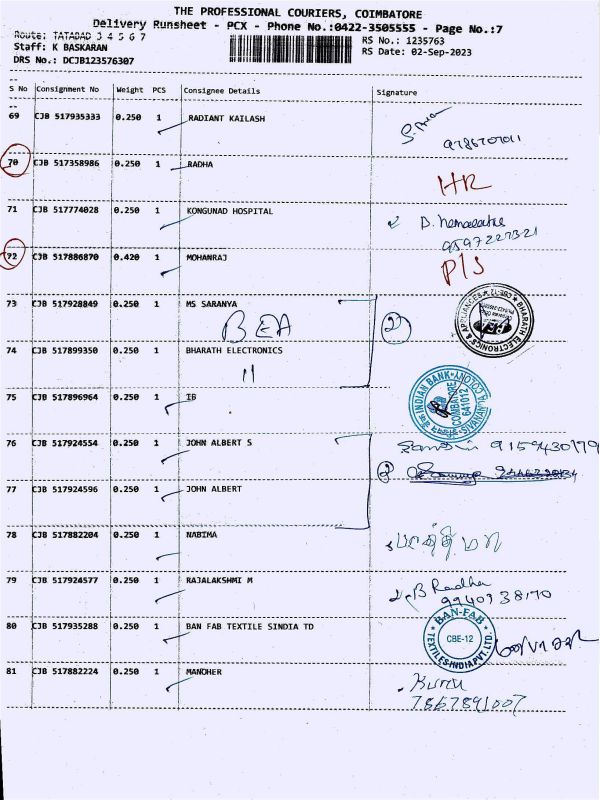 THE PROFESSIONAL COURIERS, COIMBATORE
Delivery Runsheet - PCX - Phone No.:0422-3505555 - Page No.:7
Route: TATABAD 3 4 5 6 7
Staff: K BASKARAN
DRS No.: DCJB123576307
RS No.: 1235763
RS Date: 02-Sep-2023
S No Consignment No Weight PCS Consignee Details Signature
69 CJB 517935333 0.250 1 RADIANT KAILASH
70 CJB 517358986 0.250 1 RADHA HR
71 CJB 517774028 0.250 1 KONGUNAD HOSPITAL
9597227321
72 CJB 517886870 0.420 1 MOHANRAJ P/S
73 CJB 517928849 0.250 1 MS SARANYA
BEA 2
BHARATH ELECTRONICS & APPLIANCES CBE-12
74 CJB 517899350 0.250 1 BHARATH ELECTRONICS
11
75 CJB 517896964 0.250 1 IB
INDIAN BANK SIVANANDA COLONY COIMBATORE 641012
76 CJB 517924554 0.250 1 JOHN ALBERT S
9159430179
2
77 CJB 517924596 0.250 1 JOHN ALBERT
78 CJB 517882204 0.250 1 NABIMA
79 CJB 517924577 0.250 1 RAJALAKSHMI M
B Radha
9940738170
80 CJB 517935288 0.250 1 BAN FAB TEXTILE SINDIA TD
BAN-FAB TEXTILES INDIA PVT. LTD. CBE-12
81 CJB 517882224 0.250 1 MANOHER
7867891007